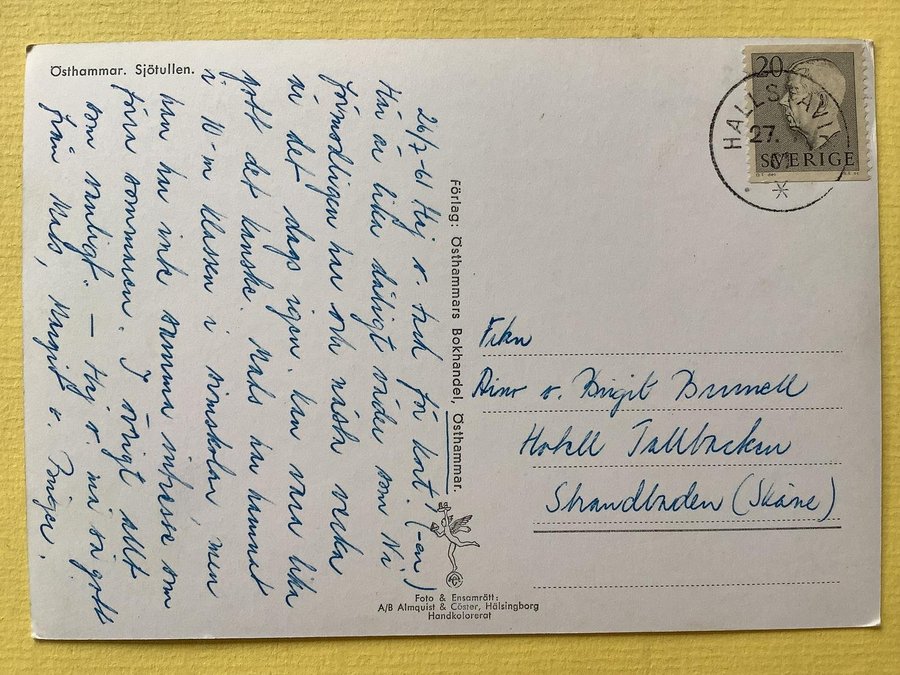 Östhammar. Sjötullen.
26/7-61 Hej o. tack för kort. (-en)
Här är lika dåligt väder som Ni
förmodligen har och nästa vecka
är det dags igen. kan vara lika
gott det kanske. Mats har hamnat
i 10-m klassen i simskolan, men
han har inte samma intresse som
förra sommaren. I övrigt allt
som vanligt. — Hej o må så gott
från Mats, Margit o. Birger.
Förlag: Östhammars Bokhandel, Östhammar.
Foto & Ensamrätt:
A/B Almquist & Cöster, Hälsingborg
Handkolorerat
20
SVERIGE
HALLSTAVIK
27.
Fru
Aino o. Birgit Brunell
Hotell Tallbacken
Strandbaden (Skåne)